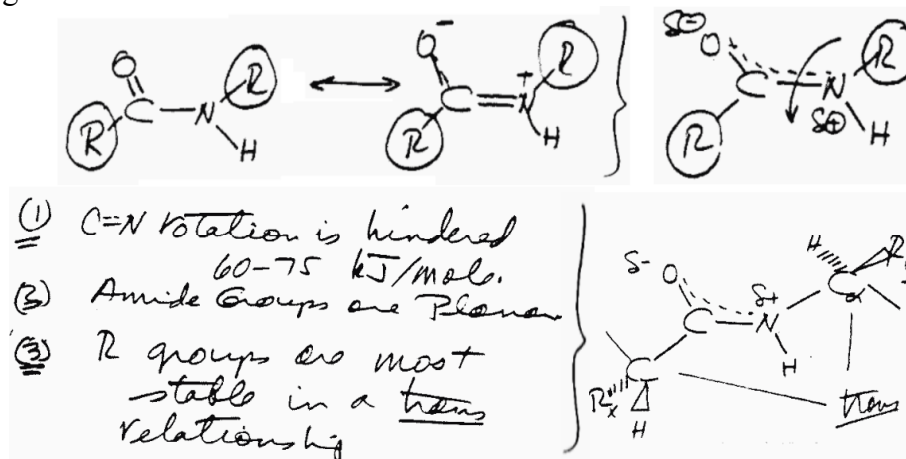 O R
C — N
R H
O⁻ R
C = N⁺
R H
δ⊖ O R
C N
R δ⊕ H
① C=N rotation is hindered
60-75 kJ/mole.
Amide Groups are Planar
③ R groups are most
stable in a trans
relationship
H R
δ- O δ+ Cα
C N
C H
Rx
H
trans